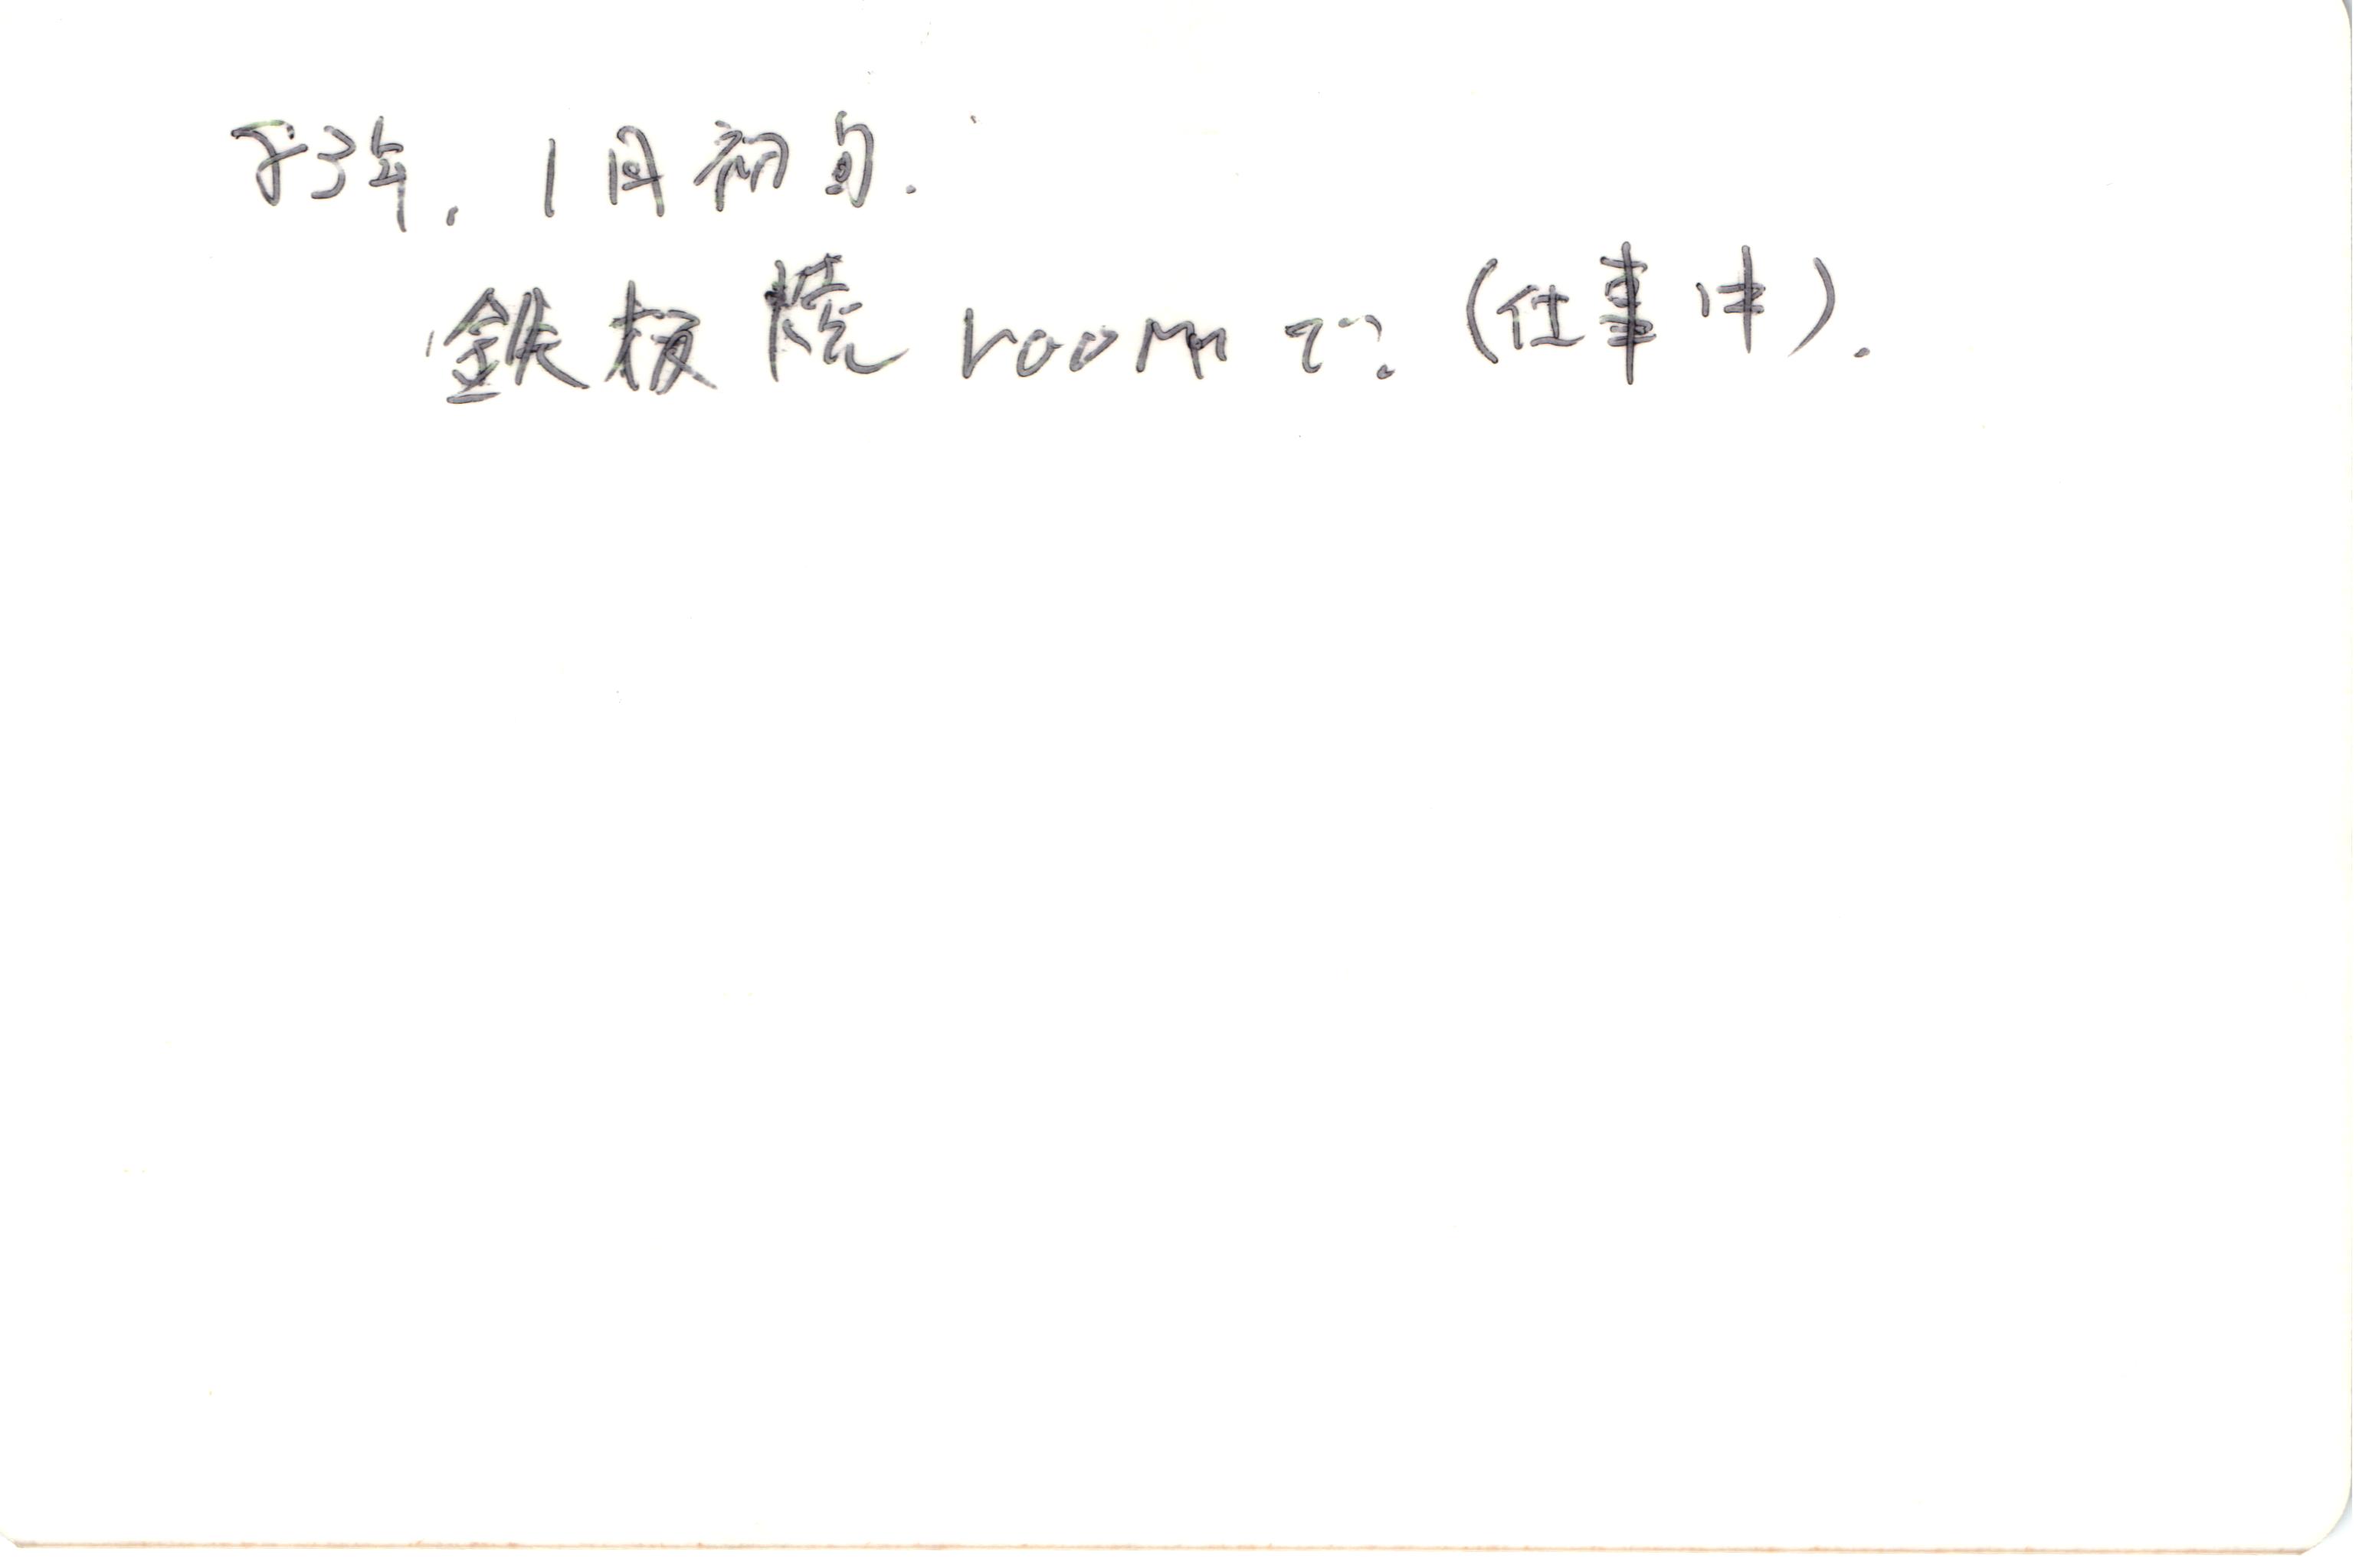 53年. 1月初旬.
鉄板焼 roomで. (仕事中).